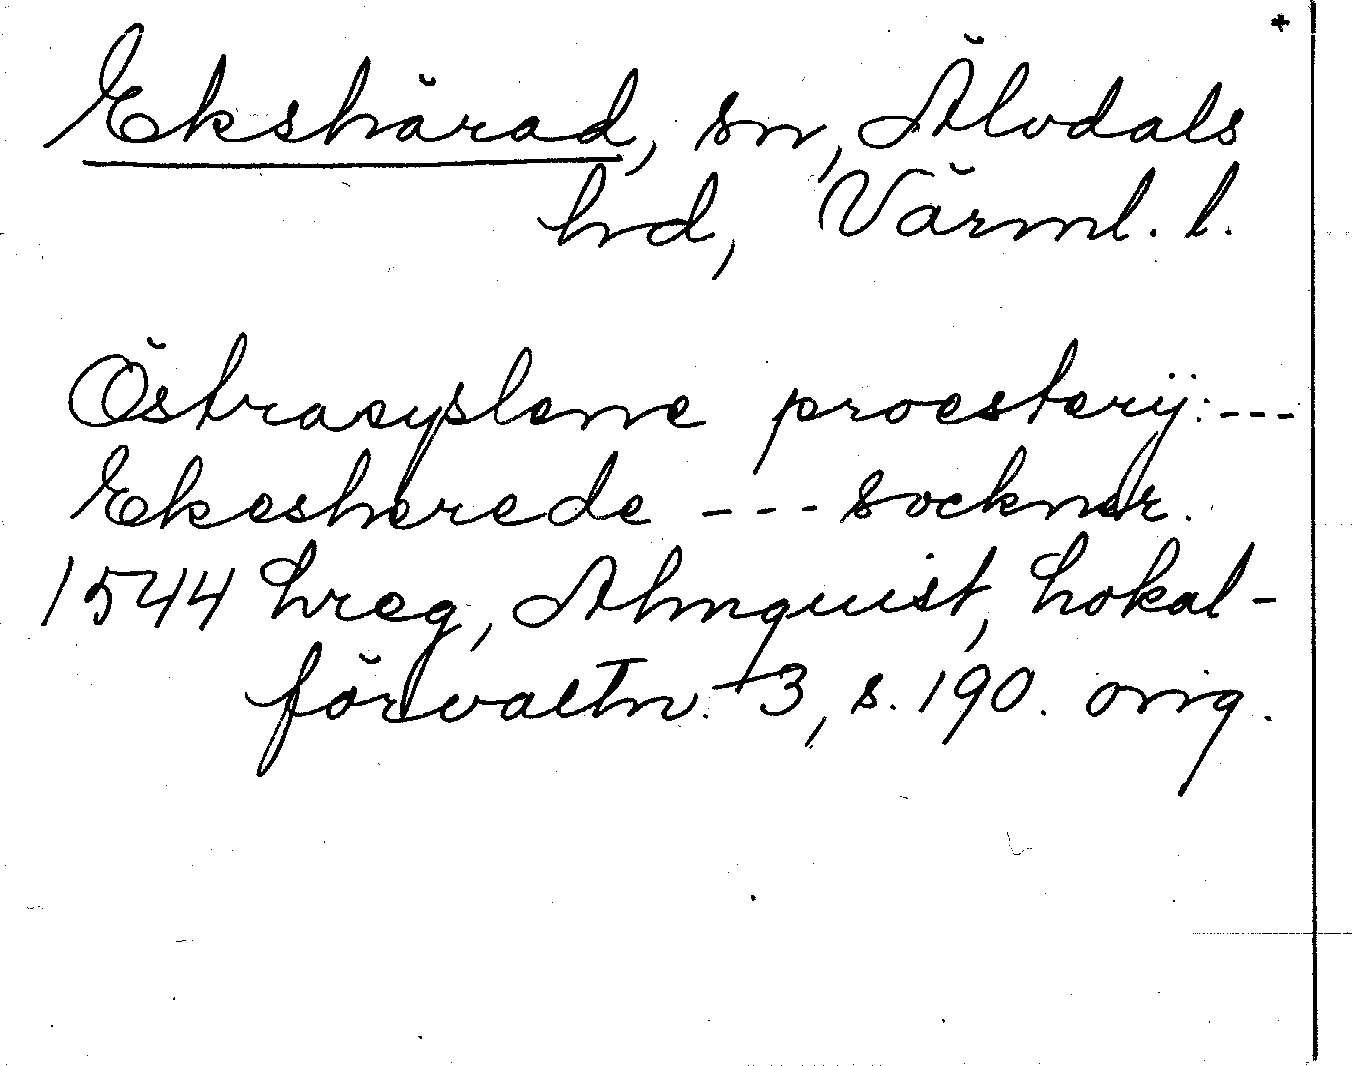 +
Ekshärad, sn, Älvdals
hd, Värml. l.
Östrasyslenne proesterij: ---
Ekesherede --- socknar.
1544 Lreg, Almquist, Lokal-
förvaltn. 3, s. 190. orig.